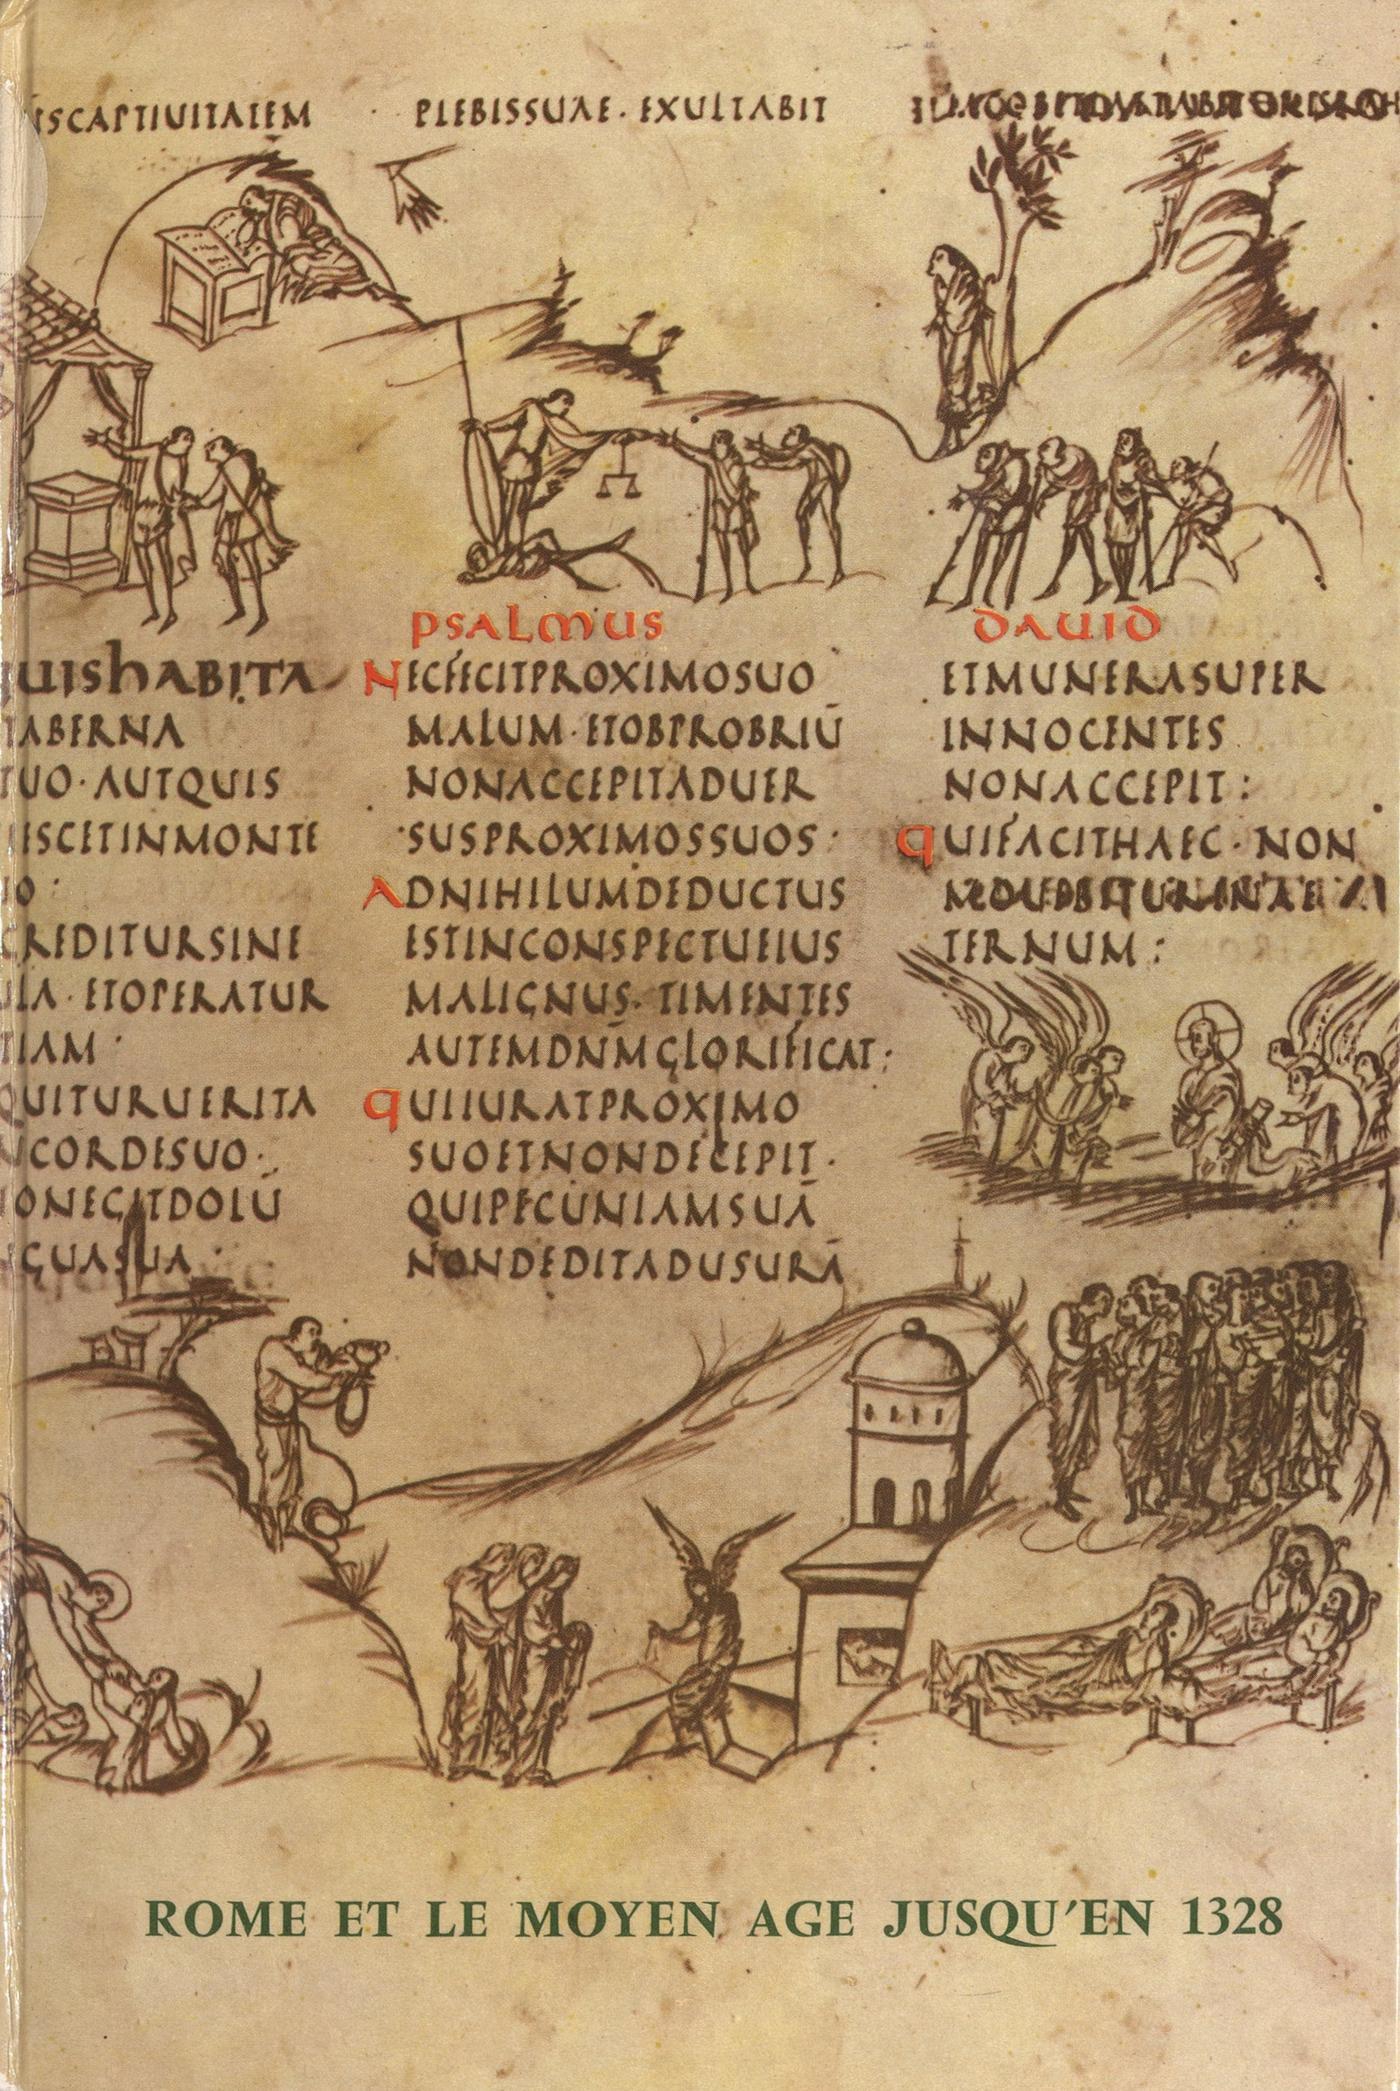 ISCAPTIUITATEM · PLEBISSUAE · EXULTABIT
UISHABITA
TABERNA
TUO · AUTQUIS
IESCETINMONTE
IO :
CREDITURSINE
ULA · ETOPERATUR
TIAM ·
QUITURUERITA
NCORDESUO ·
ONEGITDOLŪ
NGUASUA ·
PSALMUS
NECFECITPROXIMOSUO
MALUM · ETOBPROBRIŪ
NONACCEPITADUER
SUSPROXIMOSSUOS :
ADNIHILUMDEDUCTUS
ESTINCONSPECTUEIUS
MALIGNUS · TIMENTES
AUTEMDN̄MGLORIFICAT :
QUIIURATPROXIMO
SUOETNONDECEPIT ·
QUIPECUNIAMSUĀ
NONDEDITADUSURĀ
DAUID
ETMUNERASUPER
INNOCENTES
NONACCEPIT :
QUIFACITHAEC · NON
TERNUM :
ROME ET LE MOYEN AGE JUSQU'EN 1328